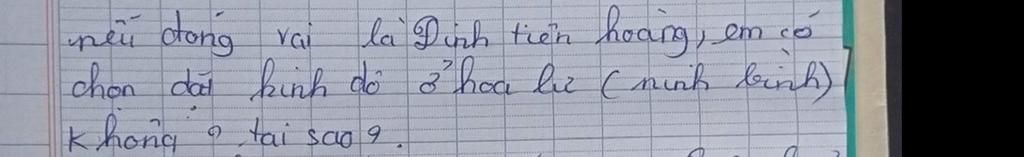 nếu đóng vai là Đinh tiên hoàng, em có
chọn đặt kinh đô ở hoa lư (ninh bình)
không ? tại sao ?.